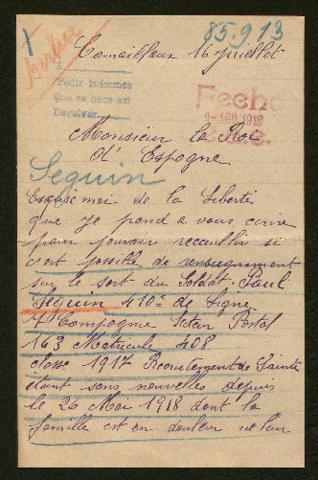 1
85.913
Cornailleaux 16 juillet
Pedir informes
que se hace en
Devolver
Fecha
2-AGO.1918
Monsieur le Roi
d'Espogne
Seguin
Escusé moi de la Liberté
que Je prend a vous ecrire
pour pouvoir recueillir si
c'est possible de renseignement
sur le sort du Soldat Paul
Seguin 410e de Ligne
7 Compagnie Secteur Postal
163 Matricule 408
classe 1917 Recrutement de Sainte
étant sans nouvelles depuis
le 26 Moi 1918 dont la
famille est en douleur